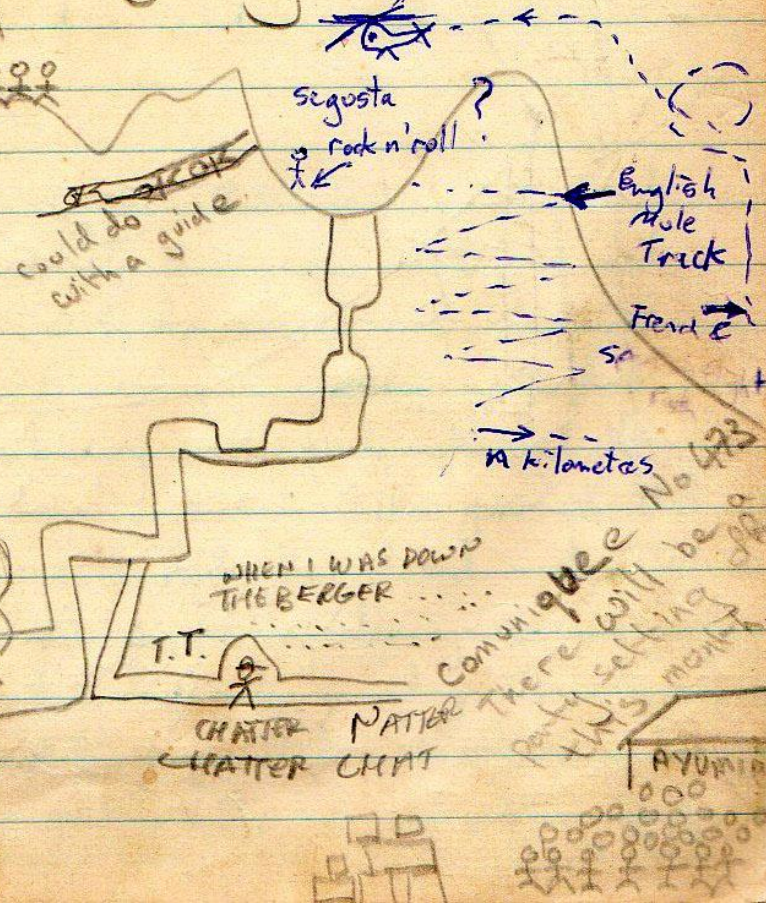 segusta
rock n' roll
?
could do
with a guide
English
Mule
Track
kilometres
WHEN I WAS DOWN
THE BERGER
T.T.
CHATTER NATTER
CHATTER CHAT
Comuniquee No 473
There will be a
party setting
this month